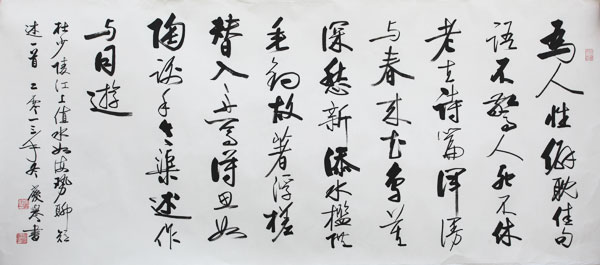 為人性僻耽佳句
語不驚人死不休
老去詩篇渾漫
与春来花鳥莫
深愁新添水檻供
垂釣故著浮槎
替入舟焉得思如
陶謝手令渠述作
与同遊
杜少陵江上值水如海勢聊短
述一首 二零一三年 書